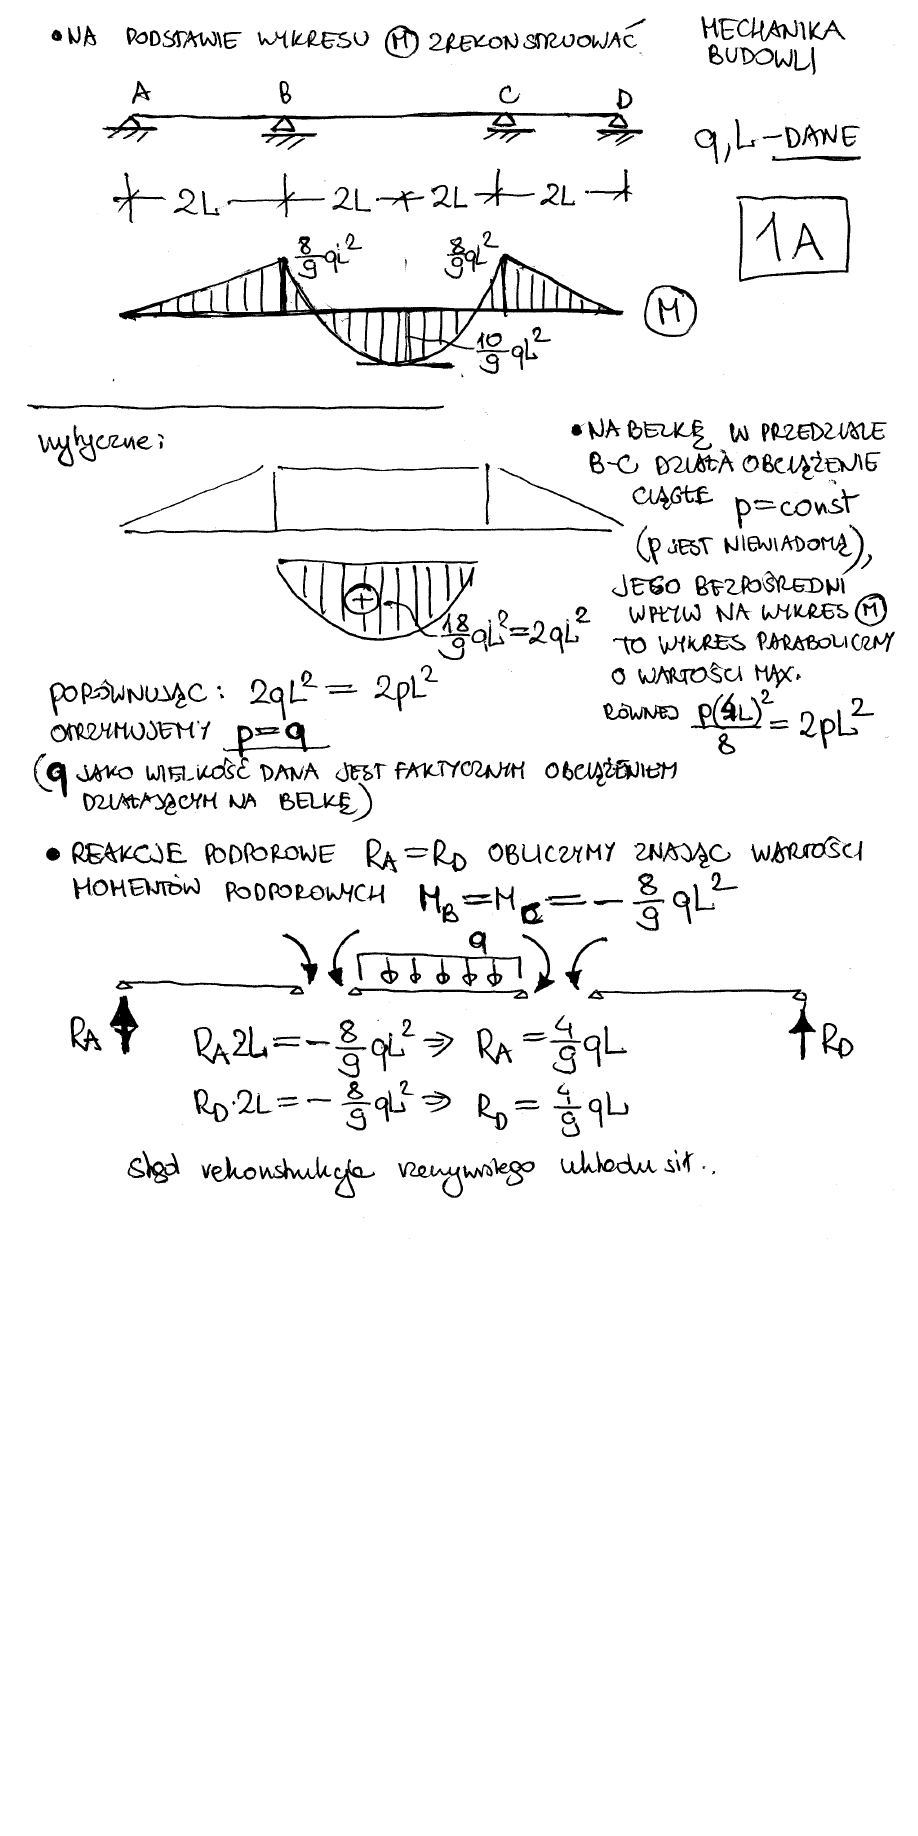 • NA PODSTAWIE WYKRESU (M) ZREKONSTRUOWAĆ
MECHANIKA
BUDOWLI
A B C D
q, L – DANE
2L 2L 2L 2L
1A
8/9 qL² 8/9 qL²
M
10/9 qL²
wytyczne:
• NA BELKĘ W PRZEDZIALE
B-C DZIAŁA OBCIĄŻENIE
CIĄGŁE p=const
(p JEST NIEWIADOMĄ),
JEGO BEZPOŚREDNI
WPŁYW NA WYKRES (M)
TO WYKRES PARABOLICZNY
O WARTOŚCI MAX.
RÓWNEJ p(4L)²/8 = 2pL²
+
18/9 qL² = 2qL²
PORÓWNUJĄC: 2qL² = 2pL²
OTRZYMUJEMY p=q
(q JAKO WIELKOŚĆ DANA JEST FAKTYCZNYM OBCIĄŻENIEM
DZIAŁAJĄCYM NA BELKĘ)
• REAKCJE PODPOROWE RA = RD OBLICZYMY ZNAJĄC WARTOŚCI
MOMENTÓW PODPOROWYCH MB = MC = – 8/9 qL²
q
RA RD
RA 2L = – 8/9 qL² ⇒ RA = 4/9 qL
RD·2L = – 8/9 qL² ⇒ RD = 4/9 qL
Stąd rekonstrukcja rzeczywistego układu sił..